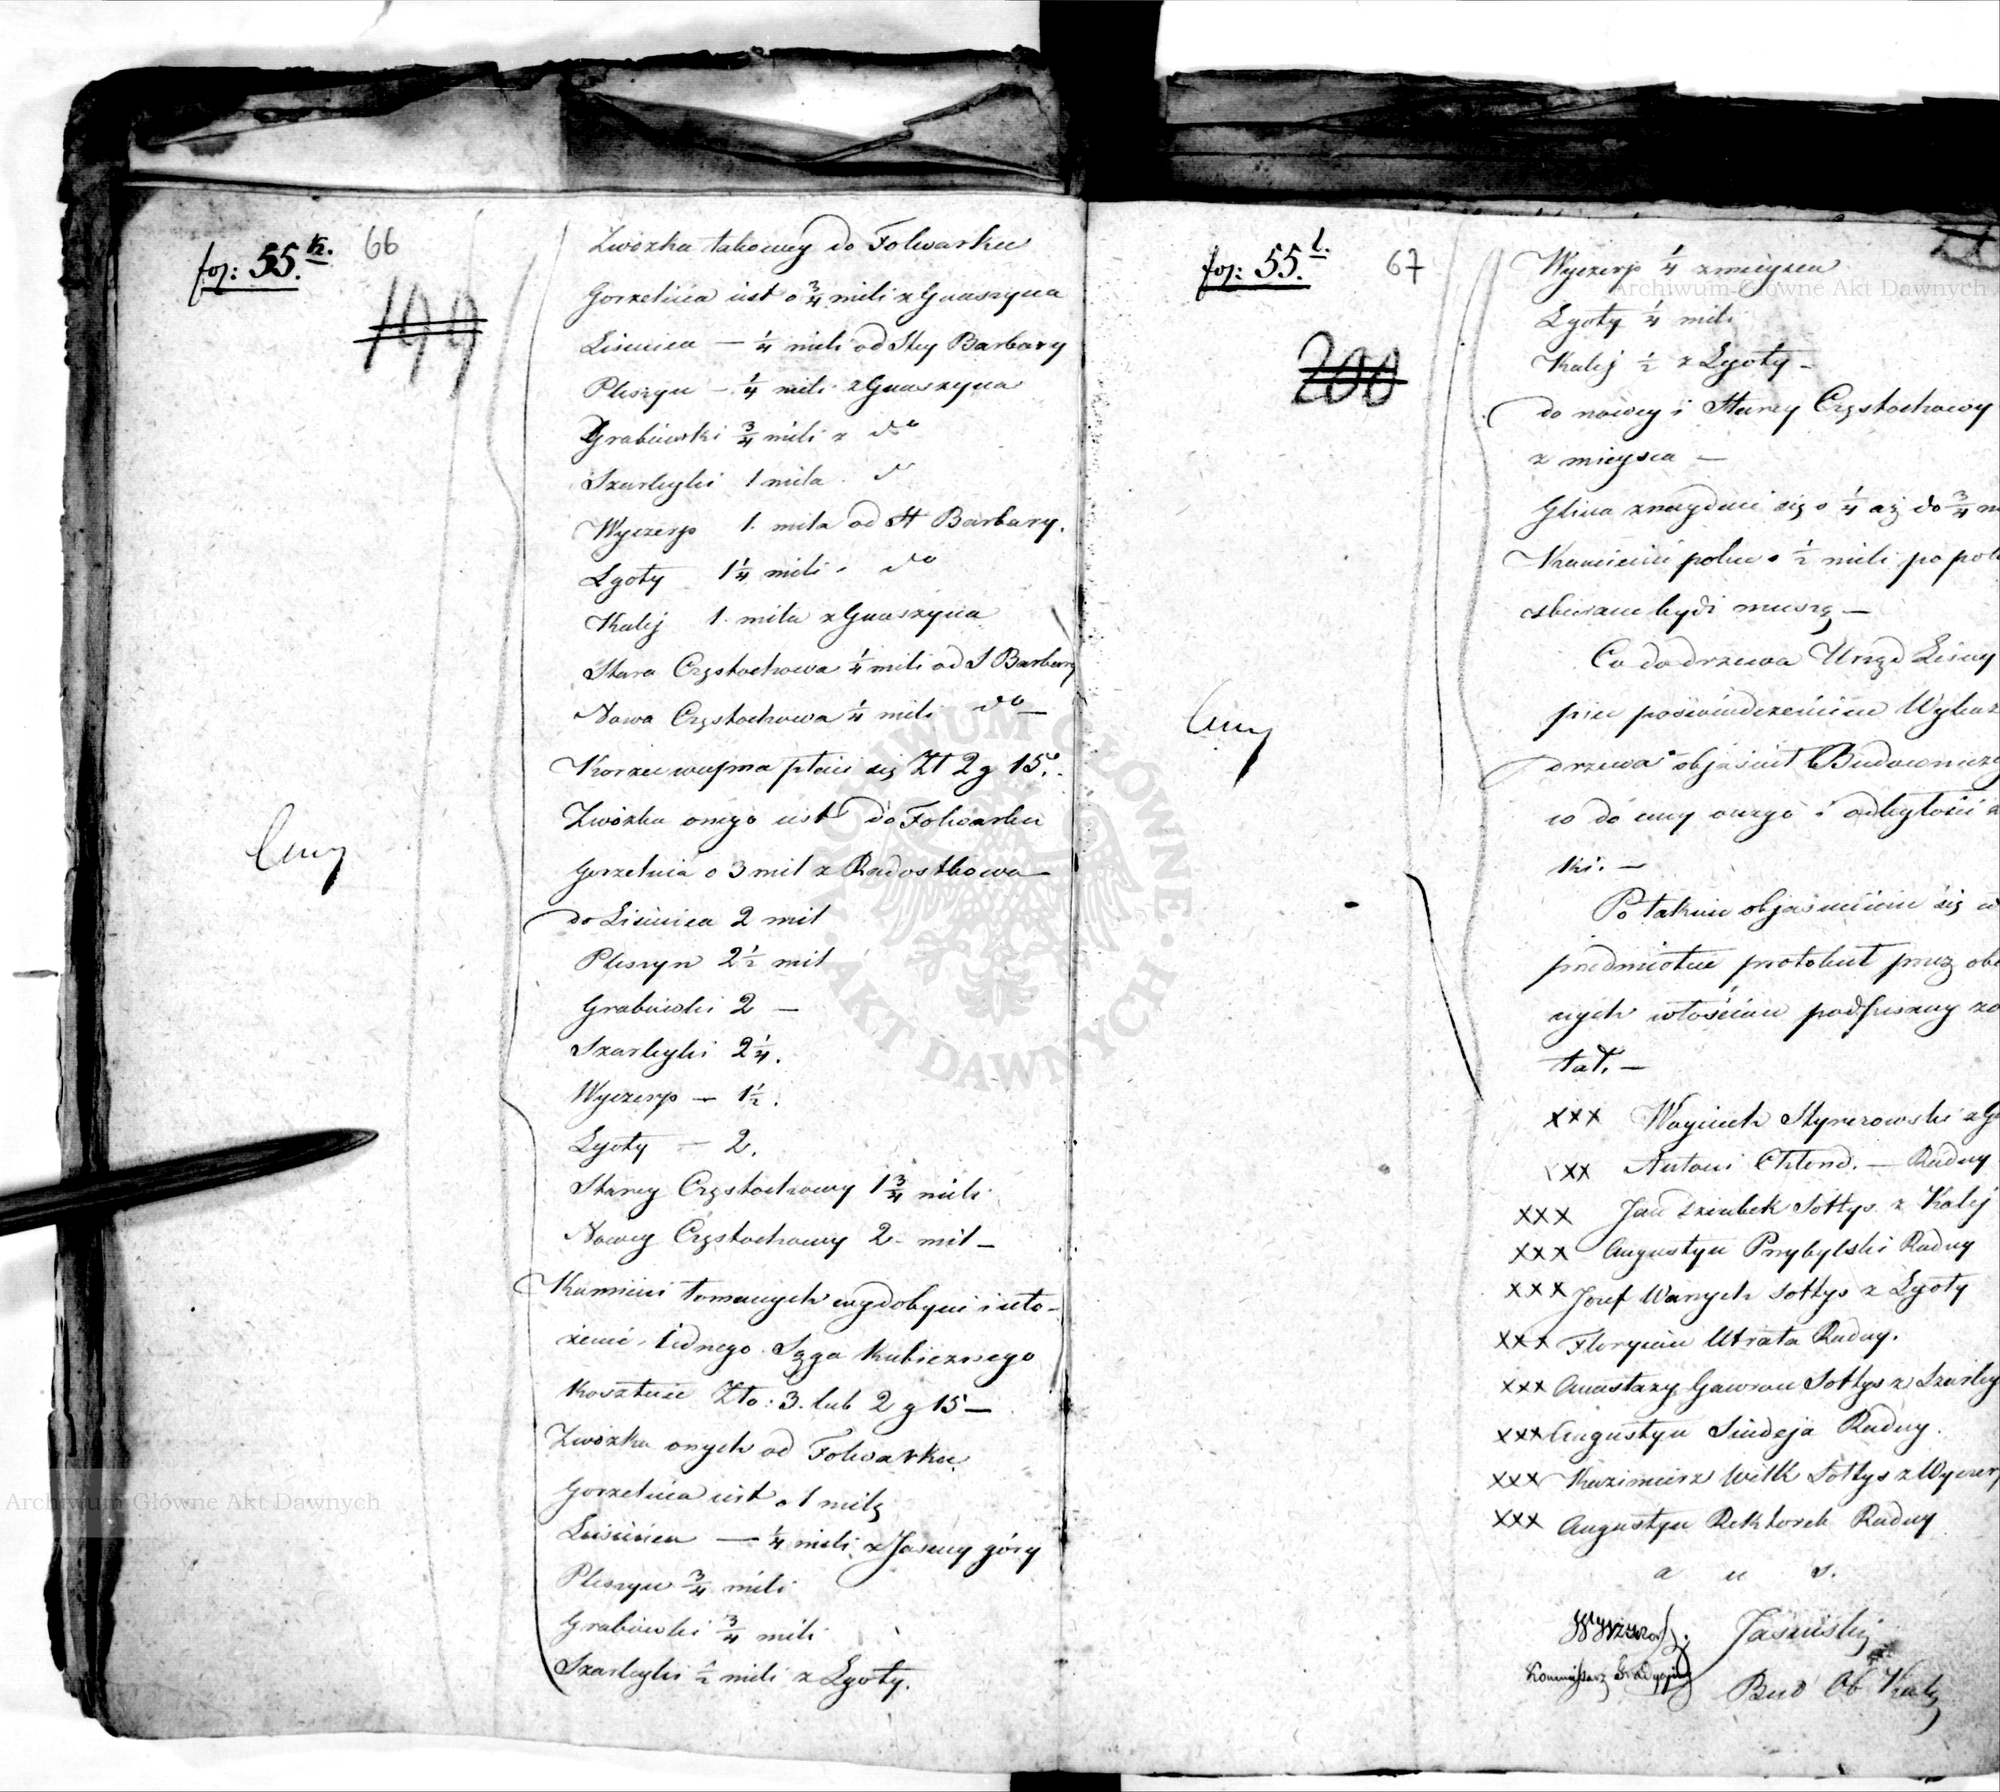 foj: 55.k.
66
199
Ceny
Zwózka takowey do Folwarku
Gorzelnia iest o 3/4 mili z Gnaszyna
Lisinica — 1/4 mili od Stey Barbary
Pleszyn — 1/4 mili z Gnaszyna
Grabówki 3/4 mili z do
Szarleyki 1 mila do
Wyczerp 1. mila od St Barbary.
Lgoty 1 1/4 mili do
Kalej 1. mila z Gnaszyna
Stara Częstochowa 1/4 mili od S Barbary
Nowa Częstochowa 1/4 mili do —
Korzec wapna płaci się Zł 2 g 15.
Zwózka onego iest do Folwarku
Gorzelnia o 3 mil z Radostkowa
do Lisinica 2 mil
Pleszyn 2 1/2 mil
Grabówki 2 —
Szarleyki 2 1/4.
Wyczerp — 1 1/2.
Lgoty — 2.
Starey Częstochowy 1 3/4 mili
Nowey Częstochowy 2 - mil —
Kamieni łomanych wydobyci i uło-
żenie iednego Sąga Kubicznego
Kosztuie Zło: 3. lub 2 g 15 —
Zwózka onych od Folwarku
Gorzelnia iest o 1 milę
Lisinica — 1/4 mili z Jasney góry
Pleszyn 3/4 mili
Grabówki 3/4 mili
Szarleyki 1/2 mili z Lgoty.
foj: 55.l.
67
200
Ceny
Wyczerp 1/4 z mieysca
Lgoty 1/4 mili
Kalej 1/2 z Lgoty —
do nowey i Starey Częstochowy
z mieysca —
Glina znayduie się o 1/4 aż do 3/4
Kamienie polne o 1/2 mili po
zbierane bydź muszą —
Co do drzewa Urząd Leśny
drzewa objaśnił Budowniczy
co do ceny onego i odległości
ki. —
Po takim objaśnieniu się
przedmiotu protokuł przez
nych włościan podpisany zo
tał. —
xxx Woyciech Styrczowski z
xxx Antoni Chłond. — Radny
xxx Jan Dziubek Sołtys z Kalej
xxx Augustyn Przybylski Radny
xxx Josef Wanych Sołtys z Lgoty
xxx Floryan Utrata Radny.
xxx Anastazy Gawron Sołtys z Szarley
xxx Augustyn Sindeja Radny.
xxx Kazimierz Wilk Sołtys z Wyczerp
xxx Augustyn Rektorek Radny
a u s.
Jasiński
Bud Ob Kal
Archiwum Główne Akt Dawnych
Archiwum Główne Akt Dawnych
ARCHIWUM GŁÓWNE · AKT DAWNYCH ·